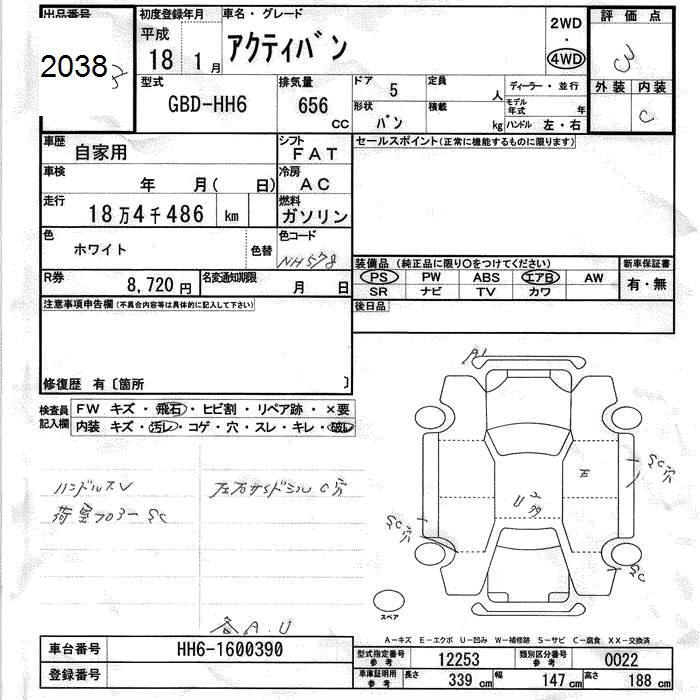 出品番号
2038
初度登録年月
平成
18 1月
車名・グレード
アクティバン
2WD
・
4WD
評価点
3
外装 内装
C
型式
GBD-HH6
排気量
656 CC
ドア 5
形状 バン
定員 人
積載 kg
ディーラー・並行
モデル年式 年
ハンドル 左・右
車歴 自家用
シフト FAT
セールスポイント(正常に機能するものに限ります)
車検 年 月( 日)
冷房 AC
走行 18万4千486 km
燃料 ガソリン
色 ホワイト 色替
色コード NH578
装備品(純正品に限り○をつけてください)
新車保証書
PS PW ABS エアB AW
SR ナビ TV カワ
有・無
R券 8,720円
名変通知期限 月 日
後日品
注意事項申告欄(不具合内容等は具体的に記入して下さい)
修復歴 有〔箇所 〕
検査員記入欄
FW キズ・飛石・ヒビ割・リペア跡・×要
内装 キズ・汚レ・コゲ・穴・スレ・キレ・破レ
A1
ハンドルスレ
荷室フロアーSC
SC穴
SC穴
SC
スペア
各A.U
A-キズ E-エクボ U-凹み W-補修跡 S-サビ C-腐食 XX-交換済
車台番号 HH6-1600390
登録番号
型式指定番号 参考 12253
類別区分番号 参考 0022
車庫証明用 参考 長さ 339cm 幅 147cm 高さ 188cm